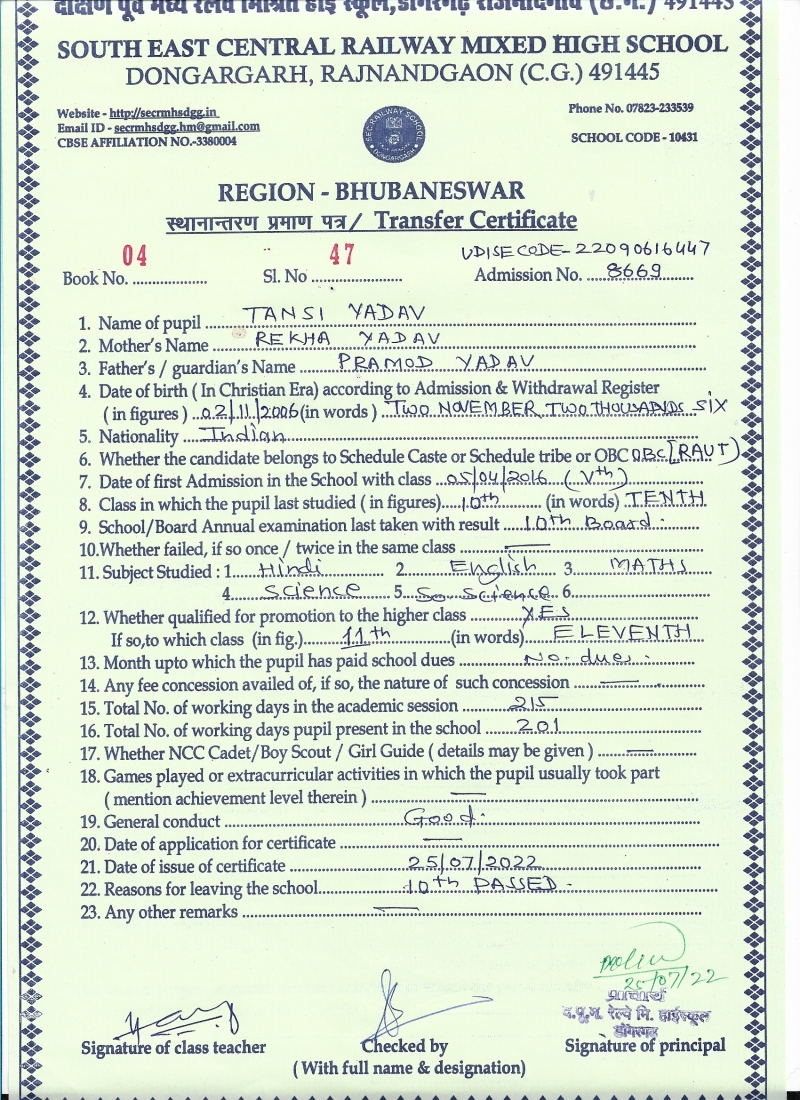 दक्षिण पूर्व मध्य रेलवे मिश्रित हाई स्कूल,डोंगरगढ़ राजनांदगांव (छ.ग.) 491445
SOUTH EAST CENTRAL RAILWAY MIXED HIGH SCHOOL
DONGARGARH, RAJNANDGAON (C.G.) 491445
Website - http://secrmhsdgg.in
Email ID - secrmhsdgg.hm@gmail.com
CBSE AFFILIATION NO.-3380004
Phone No. 07823-233539
SCHOOL CODE - 10431
SEC RAILWAY SCHOOL
DONGARGARH
REGION - BHUBANESWAR
स्थानान्तरण प्रमाण पत्र / Transfer Certificate
UDISE CODE- 22090616447
Book No. 04 Sl. No 47 Admission No. 8669
1. Name of pupil TANSI YADAV
2. Mother's Name REKHA YADAV
3. Father's / guardian's Name PRAMOD YADAV
4. Date of birth ( In Christian Era) according to Admission & Withdrawal Register
( in figures ) 02/11/2006 (in words ) TWO NOVEMBER TWO THOUSANDS SIX
5. Nationality Indian
6. Whether the candidate belongs to Schedule Caste or Schedule tribe or OBC OBC [RAUT)
7. Date of first Admission in the School with class 05/04/2016 (Vth)
8. Class in which the pupil last studied ( in figures) 10th (in words) TENTH
9. School/Board Annual examination last taken with result 10th Board.
10.Whether failed, if so once / twice in the same class —
11. Subject Studied : 1 Hindi 2 English 3 MATHS
4 Science 5 So science 6
12. Whether qualified for promotion to the higher class YES
If so,to which class (in fig.) 11th (in words) ELEVENTH
13. Month upto which the pupil has paid school dues No. dues.
14. Any fee concession availed of, if so, the nature of such concession —
15. Total No. of working days in the academic session 215
16. Total No. of working days pupil present in the school 201
17. Whether NCC Cadet/Boy Scout / Girl Guide ( details may be given ) —
18. Games played or extracurricular activities in which the pupil usually took part
( mention achievement level therein ) —
19. General conduct Good.
20. Date of application for certificate —
21. Date of issue of certificate 25/07/2022
22. Reasons for leaving the school 10th PASSED.
23. Any other remarks —
25/07/22
प्राचार्य
द.पू.म. रेल्वे मि. हाईस्कूल
डोंगरगढ़
Signature of class teacher Checked by Signature of principal
( With full name & designation)